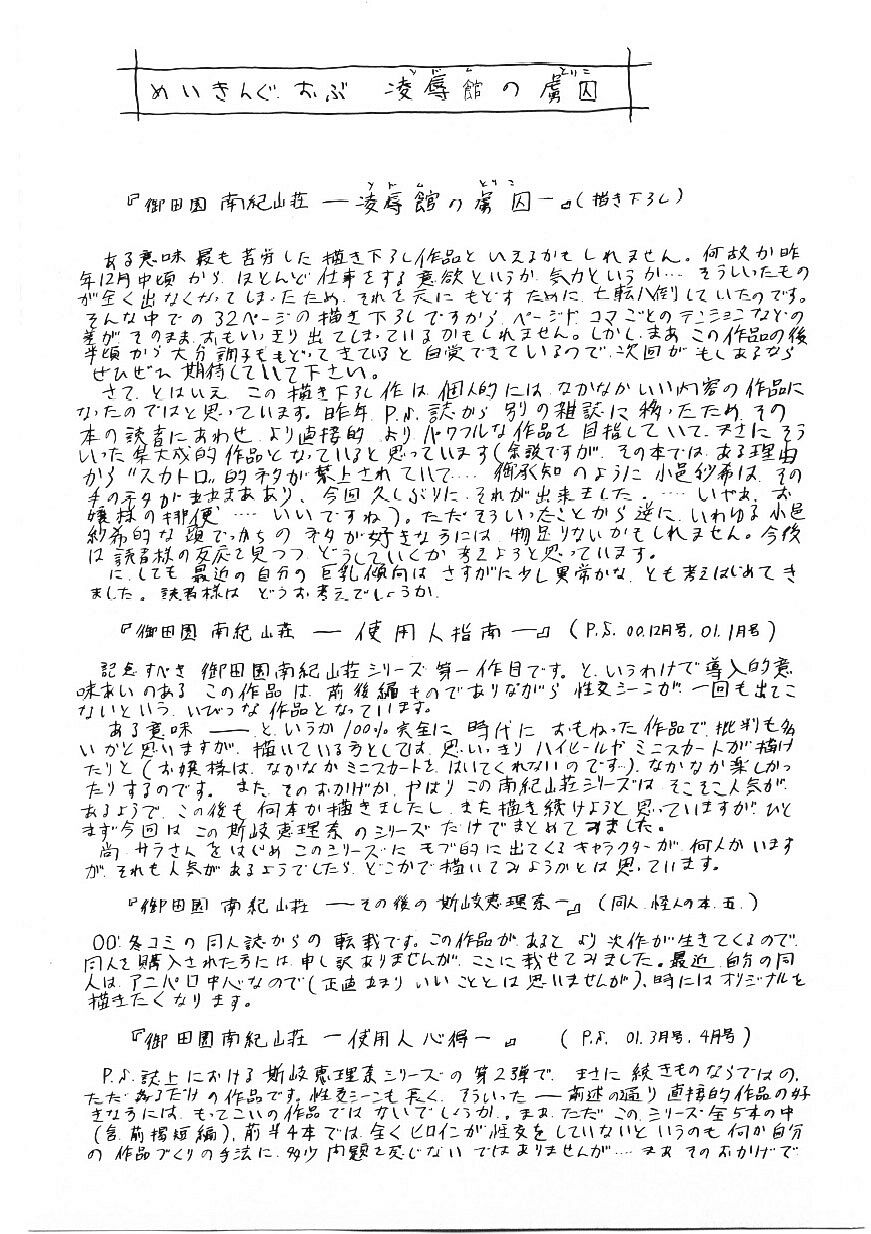 めいきんぐ おぶ 凌辱館の虜囚
『御田園南紀山荘 ―凌辱館の虜囚―』(描き下ろし)
ある意味 最も苦労した描き下ろし作品といえるかもしれません。何故か昨
年12月中頃から、ほとんど仕事をする意欲というか、気力というか… そういったもの
が全く出なくなってしまったため、それを元にもどすために七転八倒していたのです。
そんな中での32ページの描き下ろしですから、ページ コマごとのテンションなどの
差が、そのまま、おもいっきり出てしまっているかもしれません。しかし、まあ この作品の後
半頃から大分調子ももどってきていると自覚できているので、次回が もしあるなら
ぜひぜひ 期待していて下さい。
さて、とはいえ この描き下ろし作は、個人的には、なかなかいい内容の作品に
なったのではと思っています。昨年、P.S.誌から別の雑誌に移ったため、その
本の読者にあわせ、より直接的、よりパワフルな作品を目指していて、まさにそう
いった集大成的作品となっていると思っています(余談ですが、その本では、ある理由
から“スカトロ”的ネタが禁止されていて…、御承知のように小邑紗希は、その
手のネタがままあり、今回久しぶりに、それが出来ました。… いやぁ、お
嬢様の排便、… いいですね)。ただそういったことから逆に、いわゆる小邑
紗希的な頭でっかちのネタが好きな方には、物足りないかもしれません。今後
は読者様の反応を見つつ、どうしていくか考えようと思っています。
に、しても 最近の自分の巨乳傾向は、さすがに少し異常かな、とも考えはじめてき
ました。読者様は どうお考えでしょうか。
『御田園南紀山荘 ―使用人指南―』(P.S. 00.12月号、01.1月号)
記念すべき 御田園南紀山荘シリーズ第一作目です。と、いうわけで導入的意
味あいのある この作品は、前後編ものでありながら 性交シーンが一回も出てこ
ないという、いびつな作品となっています。
ある意味 ――と、いうか100%完全に 時代に おもねった作品で、批判も多
いかと思いますが、描いている方としては、思いっきり ハイヒールや ミニスカートが描け
たりと(お嬢様は、なかなかミニスカートを、はいてくれないのです…)、なかなか楽しかっ
たりするのです。また、そのおかげか、やはり この南紀山荘シリーズは、そこそこ人気が
あるようで、この後も 何本か描きましたし、また描き続けようと思っていますが、ひと
まず今回は この斯岐恵理奈のシリーズだけでまとめてみました。
尚、サラさんをはじめ このシリーズに モブ的に出てくるキャラクターが、何人かいます
が、それも人気があるようでしたら、どこかで描いてみようかとは思っています。
『御田園南紀山荘 ―その後の斯岐恵理奈―』(同人、怪人の本、五、)
00.冬コミの同人誌からの転載です。この作品があると より次作が生きてくるので、
同人を購入された方には申し訳ありませんが、ここに載せてみました。最近、自分の同
人は、アニパロ中心なので(正直あまり いいこととは思いませんが)、時にはオリジナルを
描きたくなります。
『御田園南紀山荘 ―使用人心得―』 (P.S. 01.3月号、4月号)
P.S.誌上における斯岐恵理奈シリーズの第2弾で、まさに続きものならではの、
ただ、あるだけの作品です。性交シーンも長く、そういった―前述の通り直接的作品の好
きな方には、もってこいの作品ではないでしょうか。まあ、ただ この、シリーズ全5本の中
(含、前掲短編)、前半4本では、全くヒロインが性交をしていないというのも何か自分
の作品づくりの手法に、多少問題を感じないではありませんが… まあ そのおかげで